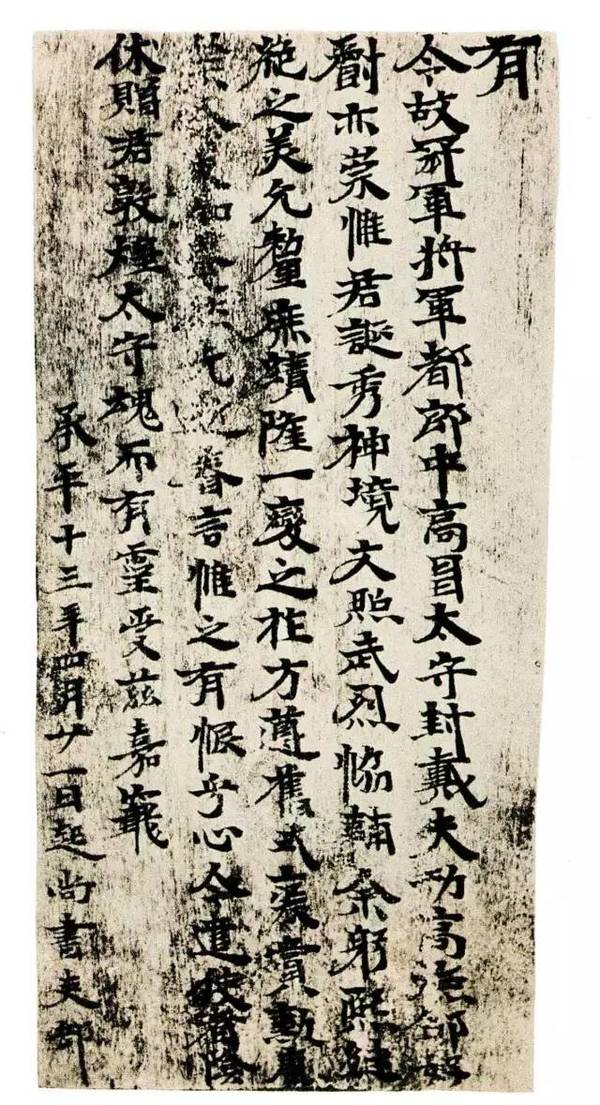 有
令故冠軍將軍都郎中高昌太守封戴夫功高德邵好
爵亦榮惟君誕秀神境文照武烈協輔余躬熙継
絶之美允釐庶績隆一變之祚方遵舊式褒賞勳庸
眷言惟之有恨乎心今遣使者陰
休贈君敦煌太守魂而有靈受茲嘉寵
承平十三年四月廿一日起尚書吏部